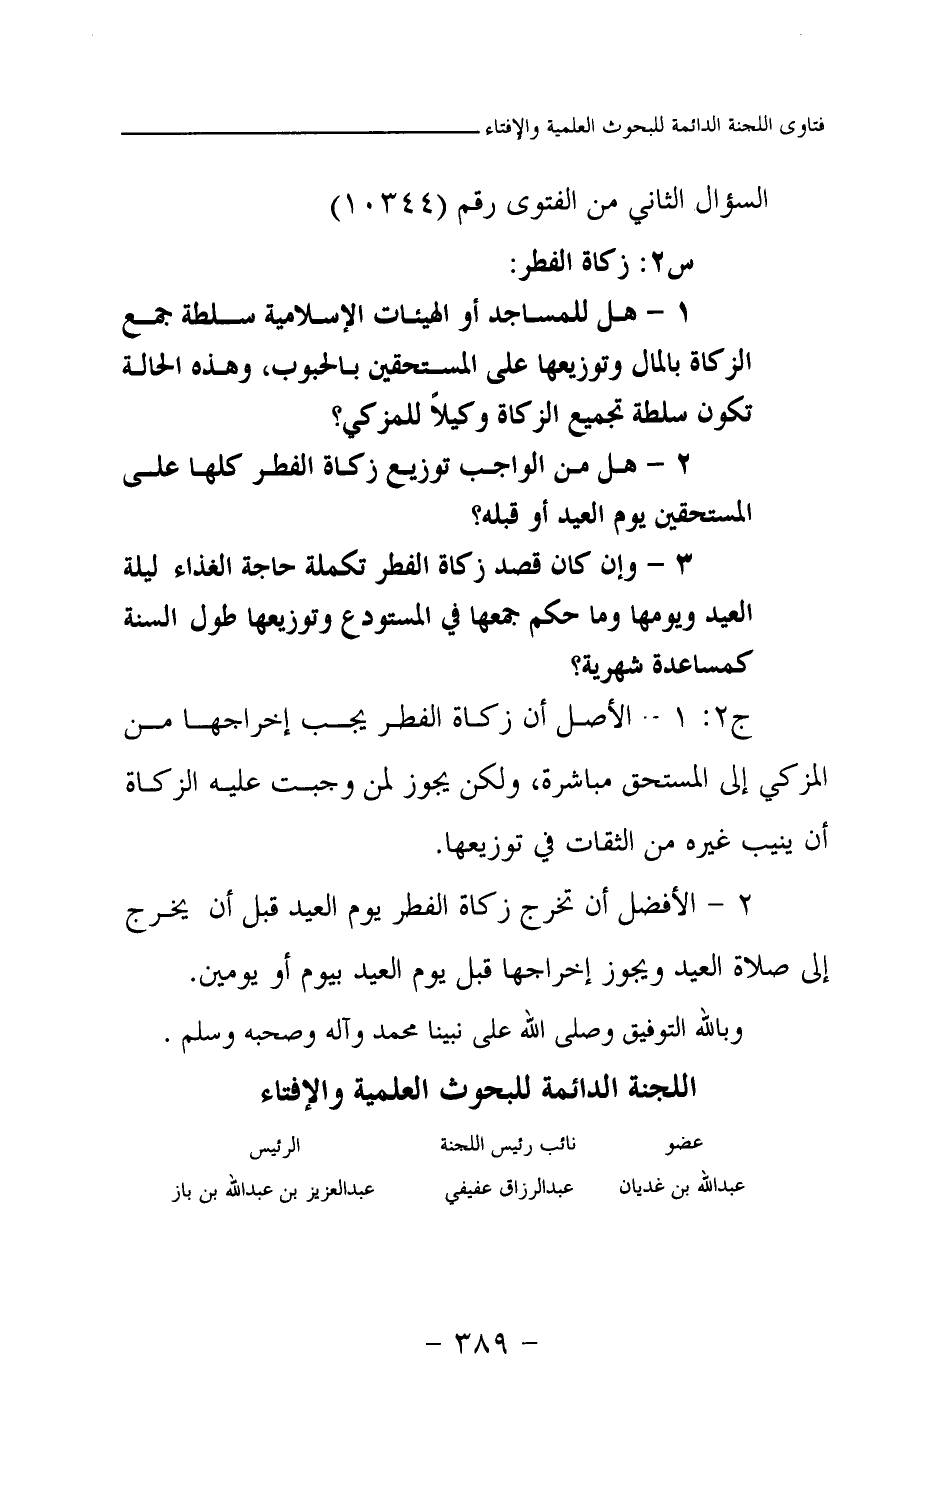 فتاوى اللجنة الدائمة للبحوث العلمية والإفتاء
السؤال الثاني من الفتوى رقم (١٠٣٤٤)
س٢: زكاة الفطر:
١ - هل للمساجد أو الهيئات الإسلامية سلطة جمع
الزكاة بالمال وتوزيعها على المستحقين بالحبوب، وهذه الحالة
تكون سلطة تجميع الزكاة وكيلاً للمزكي؟
٢ - هل من الواجب توزيع زكاة الفطر كلها على
المستحقين يوم العيد أو قبله؟
٣ - وإن كان قصد زكاة الفطر تكملة حاجة الغذاء ليلة
العيد ويومها وما حكم جمعها في المستودع وتوزيعها طول السنة
كمساعدة شهرية؟
ج٢: ١ - الأصل أن زكاة الفطر يجب إخراجها من
المزكي إلى المستحق مباشرة، ولكن يجوز لمن وجبت عليه الزكاة
أن ينيب غيره من الثقات في توزيعها.
٢ - الأفضل أن تخرج زكاة الفطر يوم العيد قبل أن يخرج
إلى صلاة العيد ويجوز إخراجها قبل يوم العيد بيوم أو يومين.
وبالله التوفيق وصلى الله على نبينا محمد وآله وصحبه وسلم .
اللجنة الدائمة للبحوث العلمية والإفتاء
عضو نائب رئيس اللجنة الرئيس
عبدالله بن غديان عبدالرزاق عفيفي عبدالعزيز بن عبدالله بن باز
- ٣٨٩ -